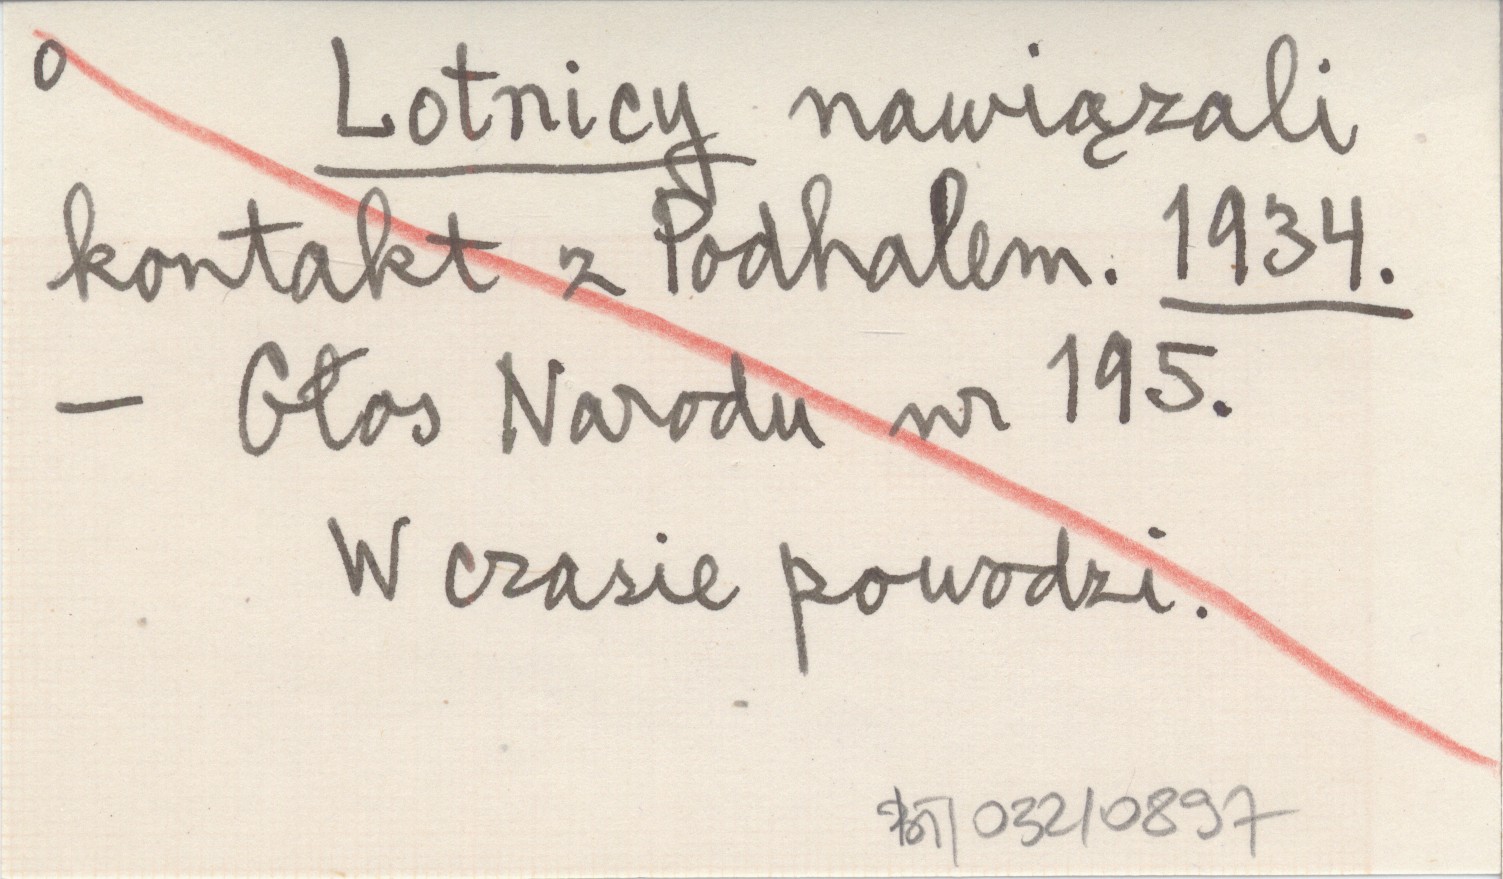 o Lotnicy nawiązali
kontakt z Podhalem. 1934.
— Głos Narodu nr 195.
W czasie powodzi.
032/0897